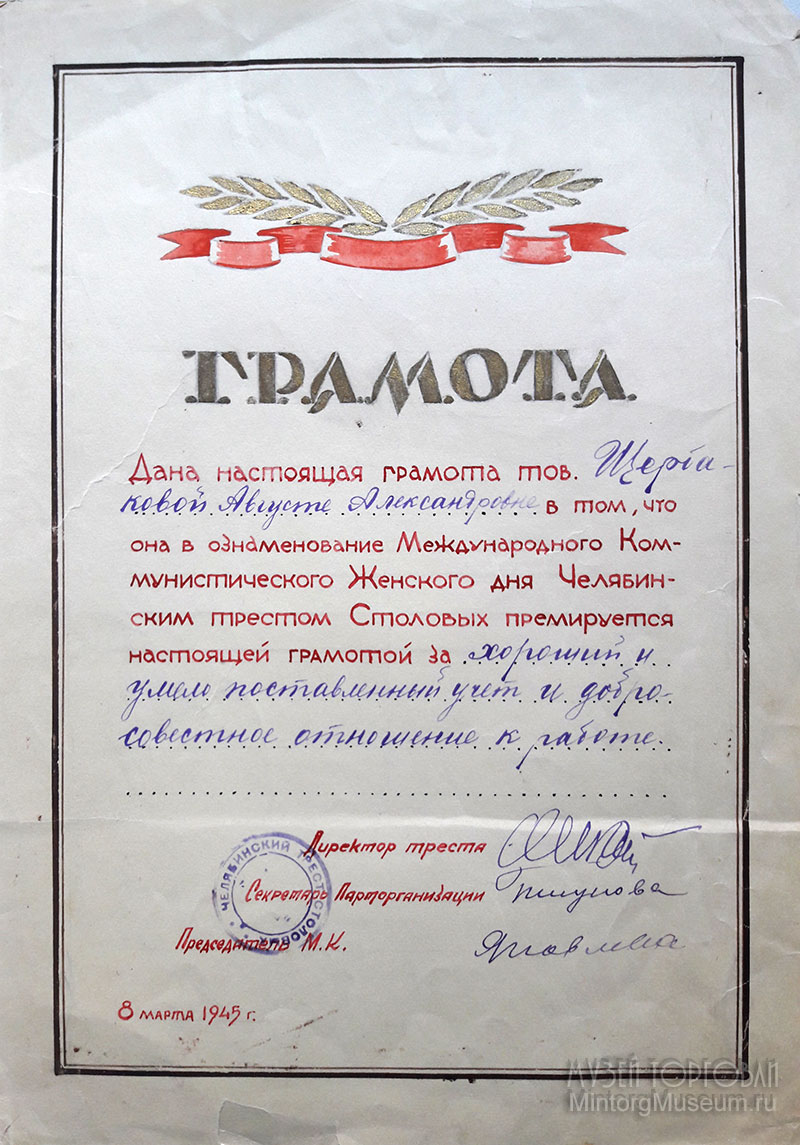 ГРАМОТА
Дана настоящая грамота тов. Щерба-
ковой Августе Александровне в том, что
она в ознаменование Международного Ком-
мунистического Женского дня Челябин-
ским трестом Столовых премируется
настоящей грамотой за хороший и
умело поставленный учет и добро-
совестное отношение к работе.
Директор треста
Секретарь Парторганизации
Председатель М.К. Яковлева
ЧЕЛЯБИНСКИЙ ТРЕСТ СТОЛОВЫХ
8 марта 1945 г.
МУЗЕЙ ТОРГОВЛИ
MintorgMuseum.ru